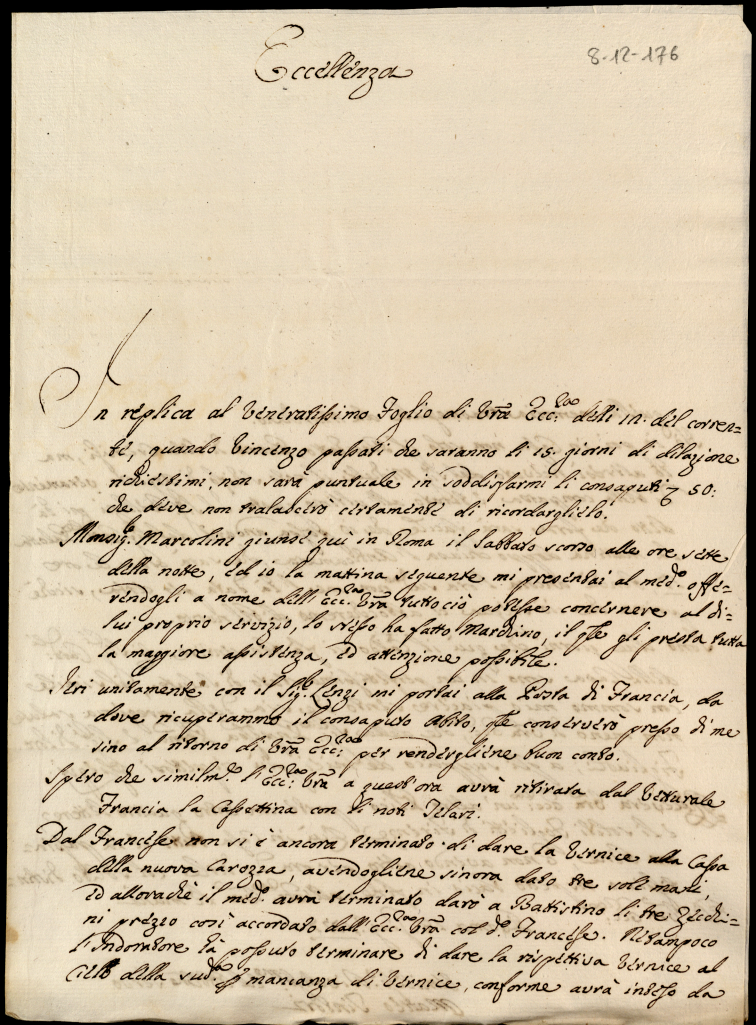 8-12-176
Eccellenza
In replica al Veneratissimo Foglio di Vrã Ecc:za delli 12. del corren=
te, quando Vincenzo passati che saranno li 15. giorni di dilazione
richiestimi, non sarà puntuale in soddisfarmi li consaputi 50:
che deve non tralascerò certamente di ricordarglielo.
Monsig.r Marcolini giunse qui in Roma il Sabbato scorso alle ore sette
della notte, ed io la mattina seguente mi presentai al med.o offe=
rendogli a nome dell' Ecc:za Vrã tutto ciò potesse concernere al di=
lui proprio servizio, lo stesso ha fatto Marchino, il qle gli presta tutta
la maggiore assistenza, ed attenzione possibile.
Ieri unitamente con il Sig.r Lenzi mi portai alla Posta di Francia, da
dove ricuperammo il consaputo Abito, qle conserverò presso di me
sino al ritorno di Vrã Ecc:za per rendergliene buon conto.
Spero che similm.e l'Ecc:za Vrã a quest'ora avrà ritirata dal Vetturale
Francia la Cassettina con li noti Telari.
Dal Francese non si è ancora terminato di dare la Vernice alla Cassa
della nuova Carozza, avendogliene sinora dato tre sole mani,
ed allorachè il med.o avrà terminato darò a Battistino li tre Zecchi=
ni prezzo così accordato dall' Ecc:za Vrã col d.o Francese. Netampoco
l'Indoratore hà possuto terminare di dare la rispettiva Vernice al
Cielo della sud.a mancanza di Vernice, conforme avrà inteso da